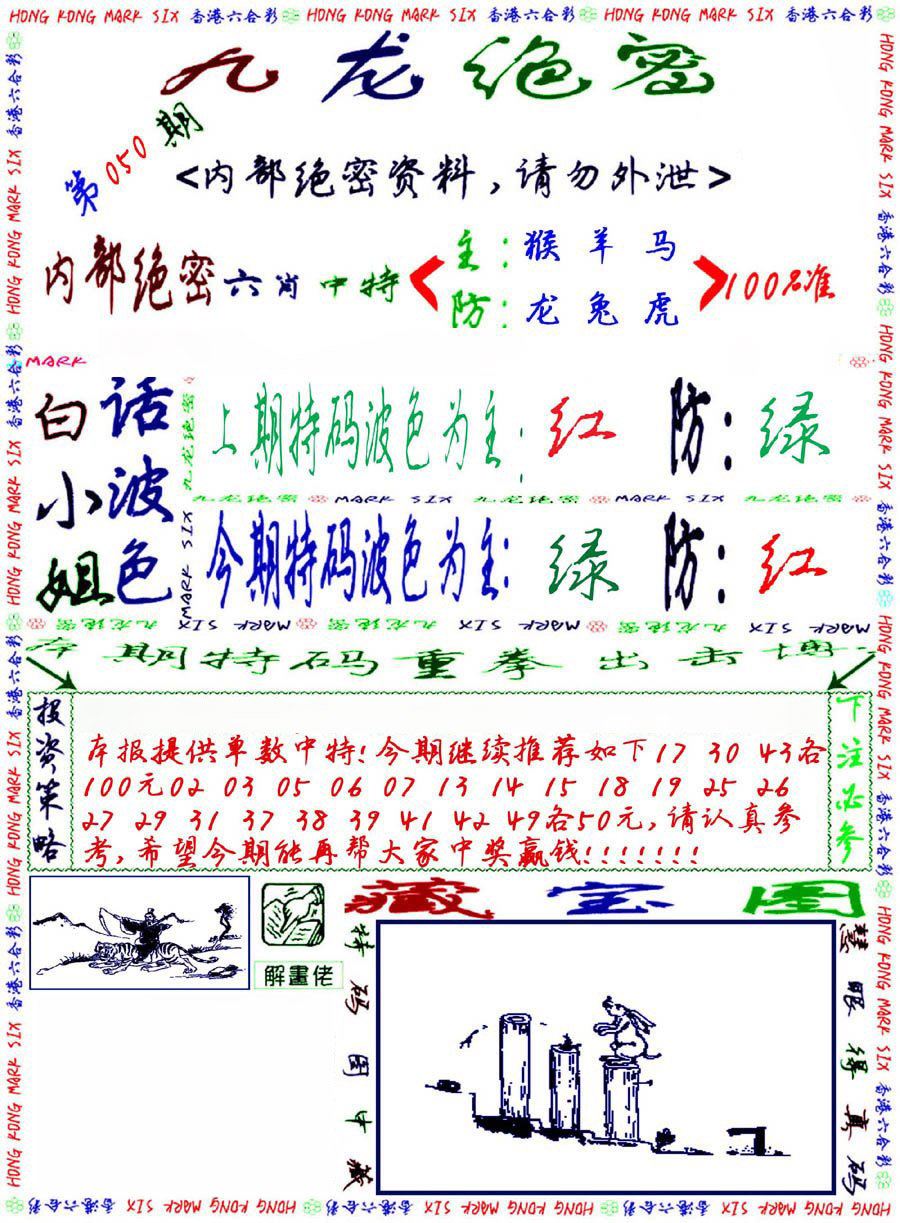 HONG KONG MARK SIX 香港六合彩 HONG KONG MARK SIX 香港六合彩 HONG KONG MARK SIX 香港六合彩
九龙绝密
第050期
<内部绝密资料,请勿外泄>
内部绝密六肖中特
主:猴羊马
防:龙兔虎
100%准
MARK
白小姐
话波色
上期特码波色为主:红 防:绿
九龙绝密 MARK SIX 九龙绝密 MARK SIX 九龙绝密
今期特码波色为主:绿 防:红
九龙绝密 MARK SIX 九龙绝密 MARK SIX 九龙绝密 MARK SIX
本期特码重拳出击
投资策略
本报提供单数中特!今期继续推荐如下17 30 43各
100元02 03 05 06 07 13 14 15 18 19 25 26
27 29 31 37 38 39 41 42 49各50元,请认真参
考,希望今期能再帮大家中奖赢钱!!!!!!!
下注必参
解畫佬
藏宝图
特码图中藏
慧眼得真码
HONG KONG MARK SIX 香港六合彩 HONG KONG MARK SIX 香港六合彩 HONG KONG MARK SIX 香港六合彩